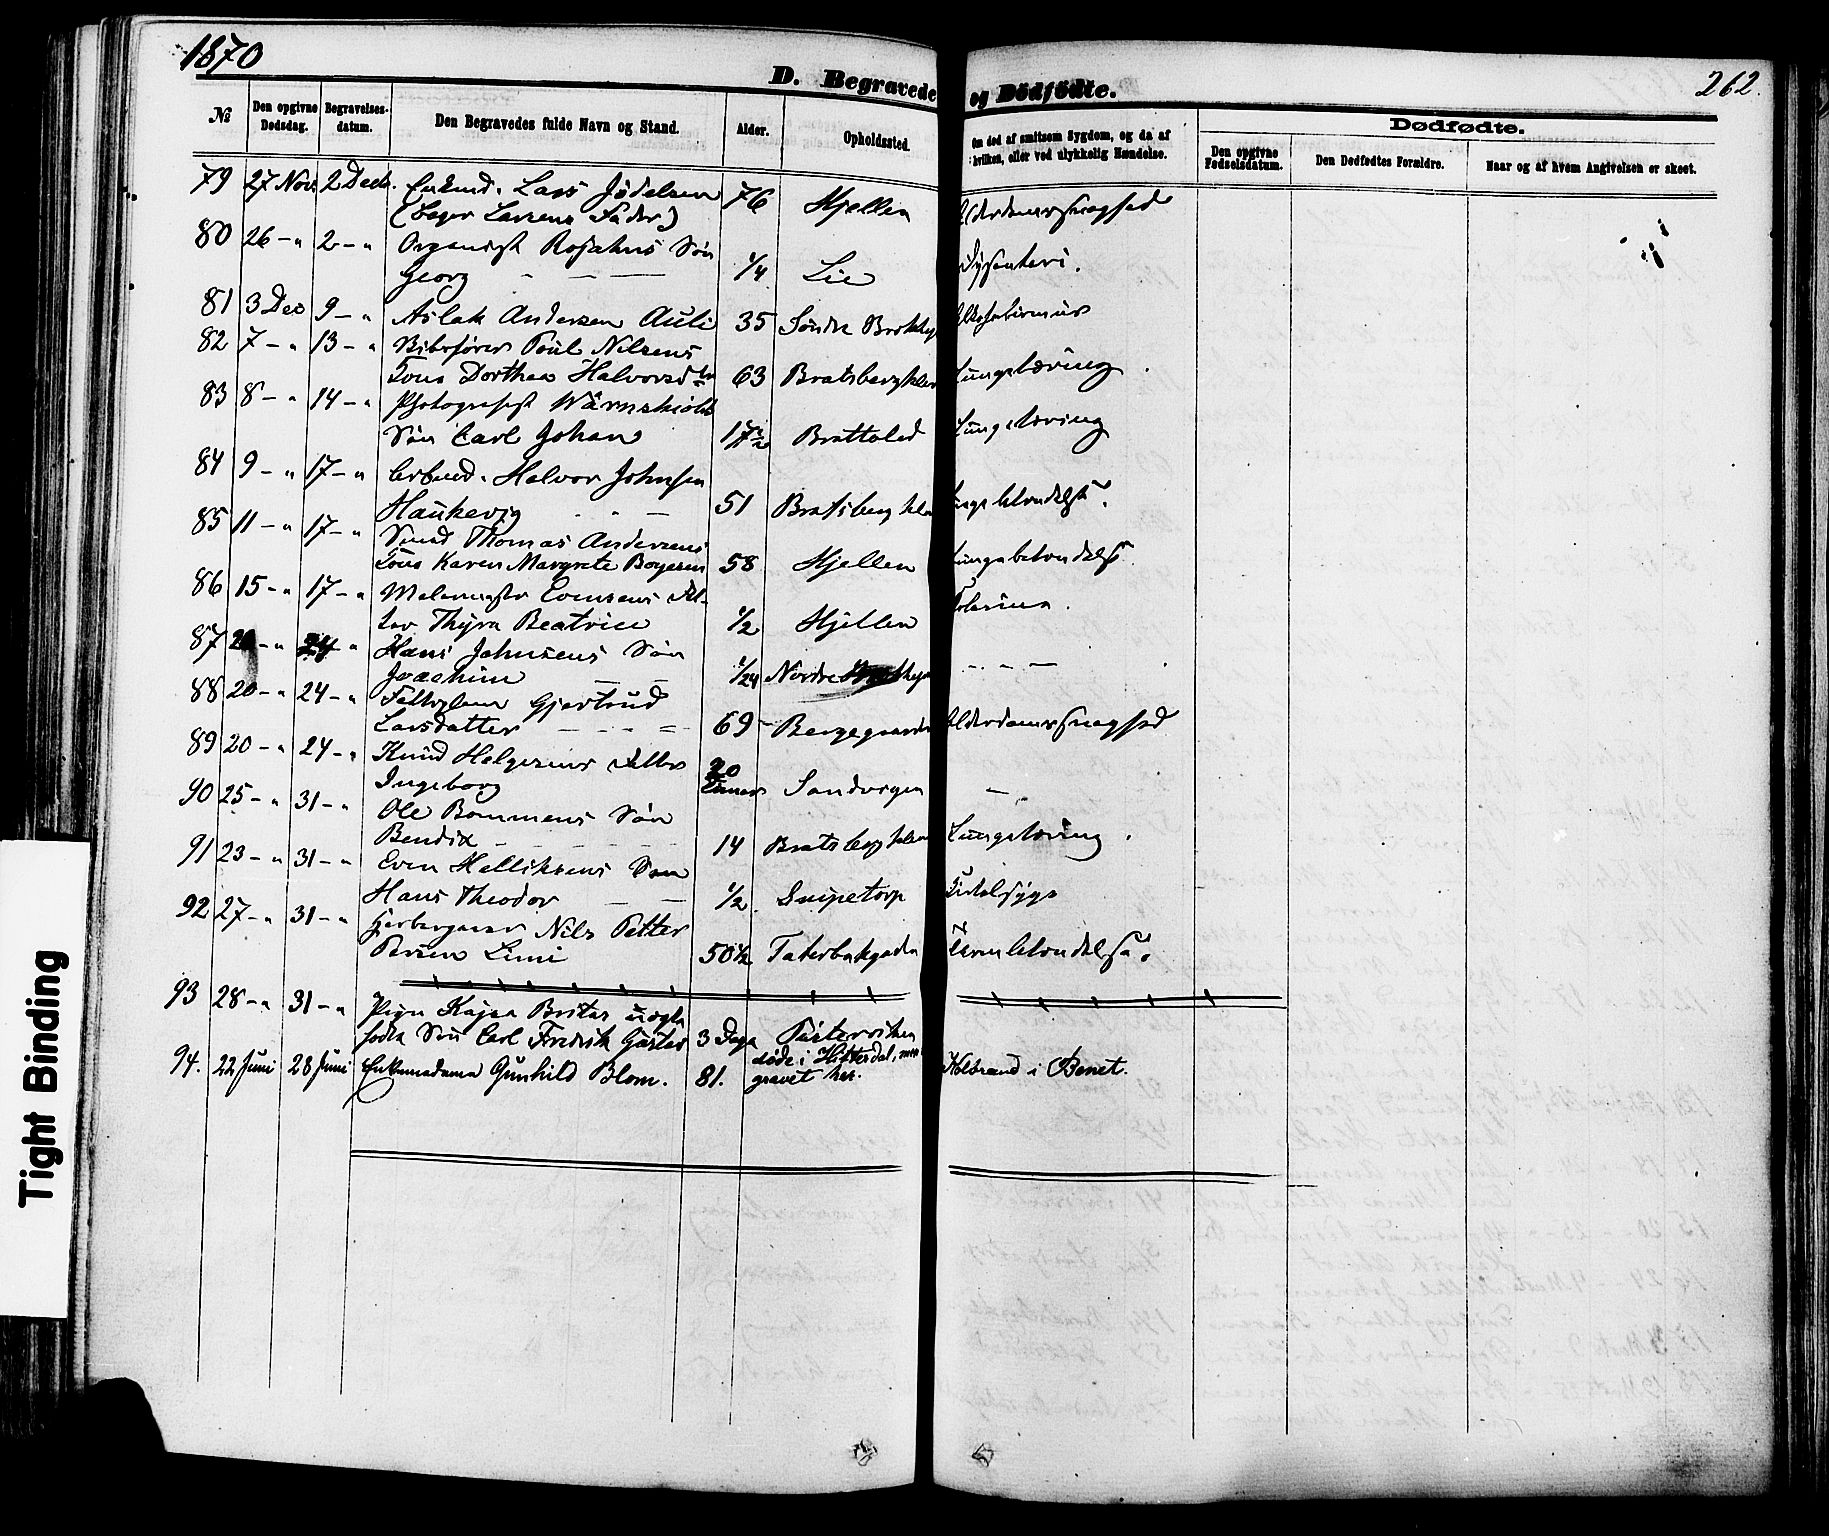 1870
262.
D. Begravede og Dödfödte.
№ Den opgivne Dødsdag. Begravelses-datum. Den Begravedes fulde Navn og Stand. Alder. Opholdssted. Om død af smitsom Sygdom, og da af hvilken, eller ved ulykkelig Hændelse. Dødfødte.
Den opgivne Fødselsdatum. Den Dødfødtes Forældre. Naar og af hvem Angivelsen er skeet.
79 27 Novr 2 Decbr. Enkmd. Lars Jödelsen 76 Hjellen Alderdomssvaghed
(Bager Larsens Fader)
80 26 - " 2 - " Organist Rojahns Sön
Georg 1/4 Lie Dysenteri.
81 3 Dec 9 - " Aslak Andersen Auli 35 Söndre Brekkeg
82 7 - " 13 - " Poul Nilsens
Kone Dorthea Halvorsdtr 63 Bratsbergklev Lungetæring
83 8 - " 14 - " Photografist Wärnskiold
Sön Carl Johan 17 1/2 Bratteled Lungetæring
84 9 - " 17 - " Arbmd. Halvor Johnsen
Haukevig 51 Bratsbergklev Lungebetændelse.
85 11 - " 17 - " Smed Thomas Andersens
Kone Karen Margrete Boyesen 58 Hjellen Lungebetændelse
86 15 - " 17 - " Malermester Evensens Dat-
ter Thyra Beatrice 1/2 Hjellen Kolerina.
87 - " 24 - " Hans Johnsens Sön
Joachim 1/24 Nordre
88 20 - " 24 - " Gjertrud
Larsdatter 69 Alderdomssvaghed
89 20 - " 24 - " Knud Helgesens Datter
Ingeborg 20 Timer Sandvigen -
90 25 - " 31 - " Ole Bommens Sön
Bendix 14 Bratsbergklev Lungetæring.
91 23 - " 31 - " Even Helliksens Sön
Hans Theodor 1/2 Snipetorp Kirtelsyge
92 27 - " 31 - " Nils Petter
Persen Limi 50 1/2 Taterbakgada Tarmbetændelse.
93 28 - " 31 - " Pige Kajsa Britas uægte
födte Sön Carl Fredrik Gustav 3 Dage
94. 22 Juni 28 Juni Enkemadame Gunhild Blom. 81. döde i Hitterdal, men
gravet her. Kolbrand i Benet.
Tight Binding